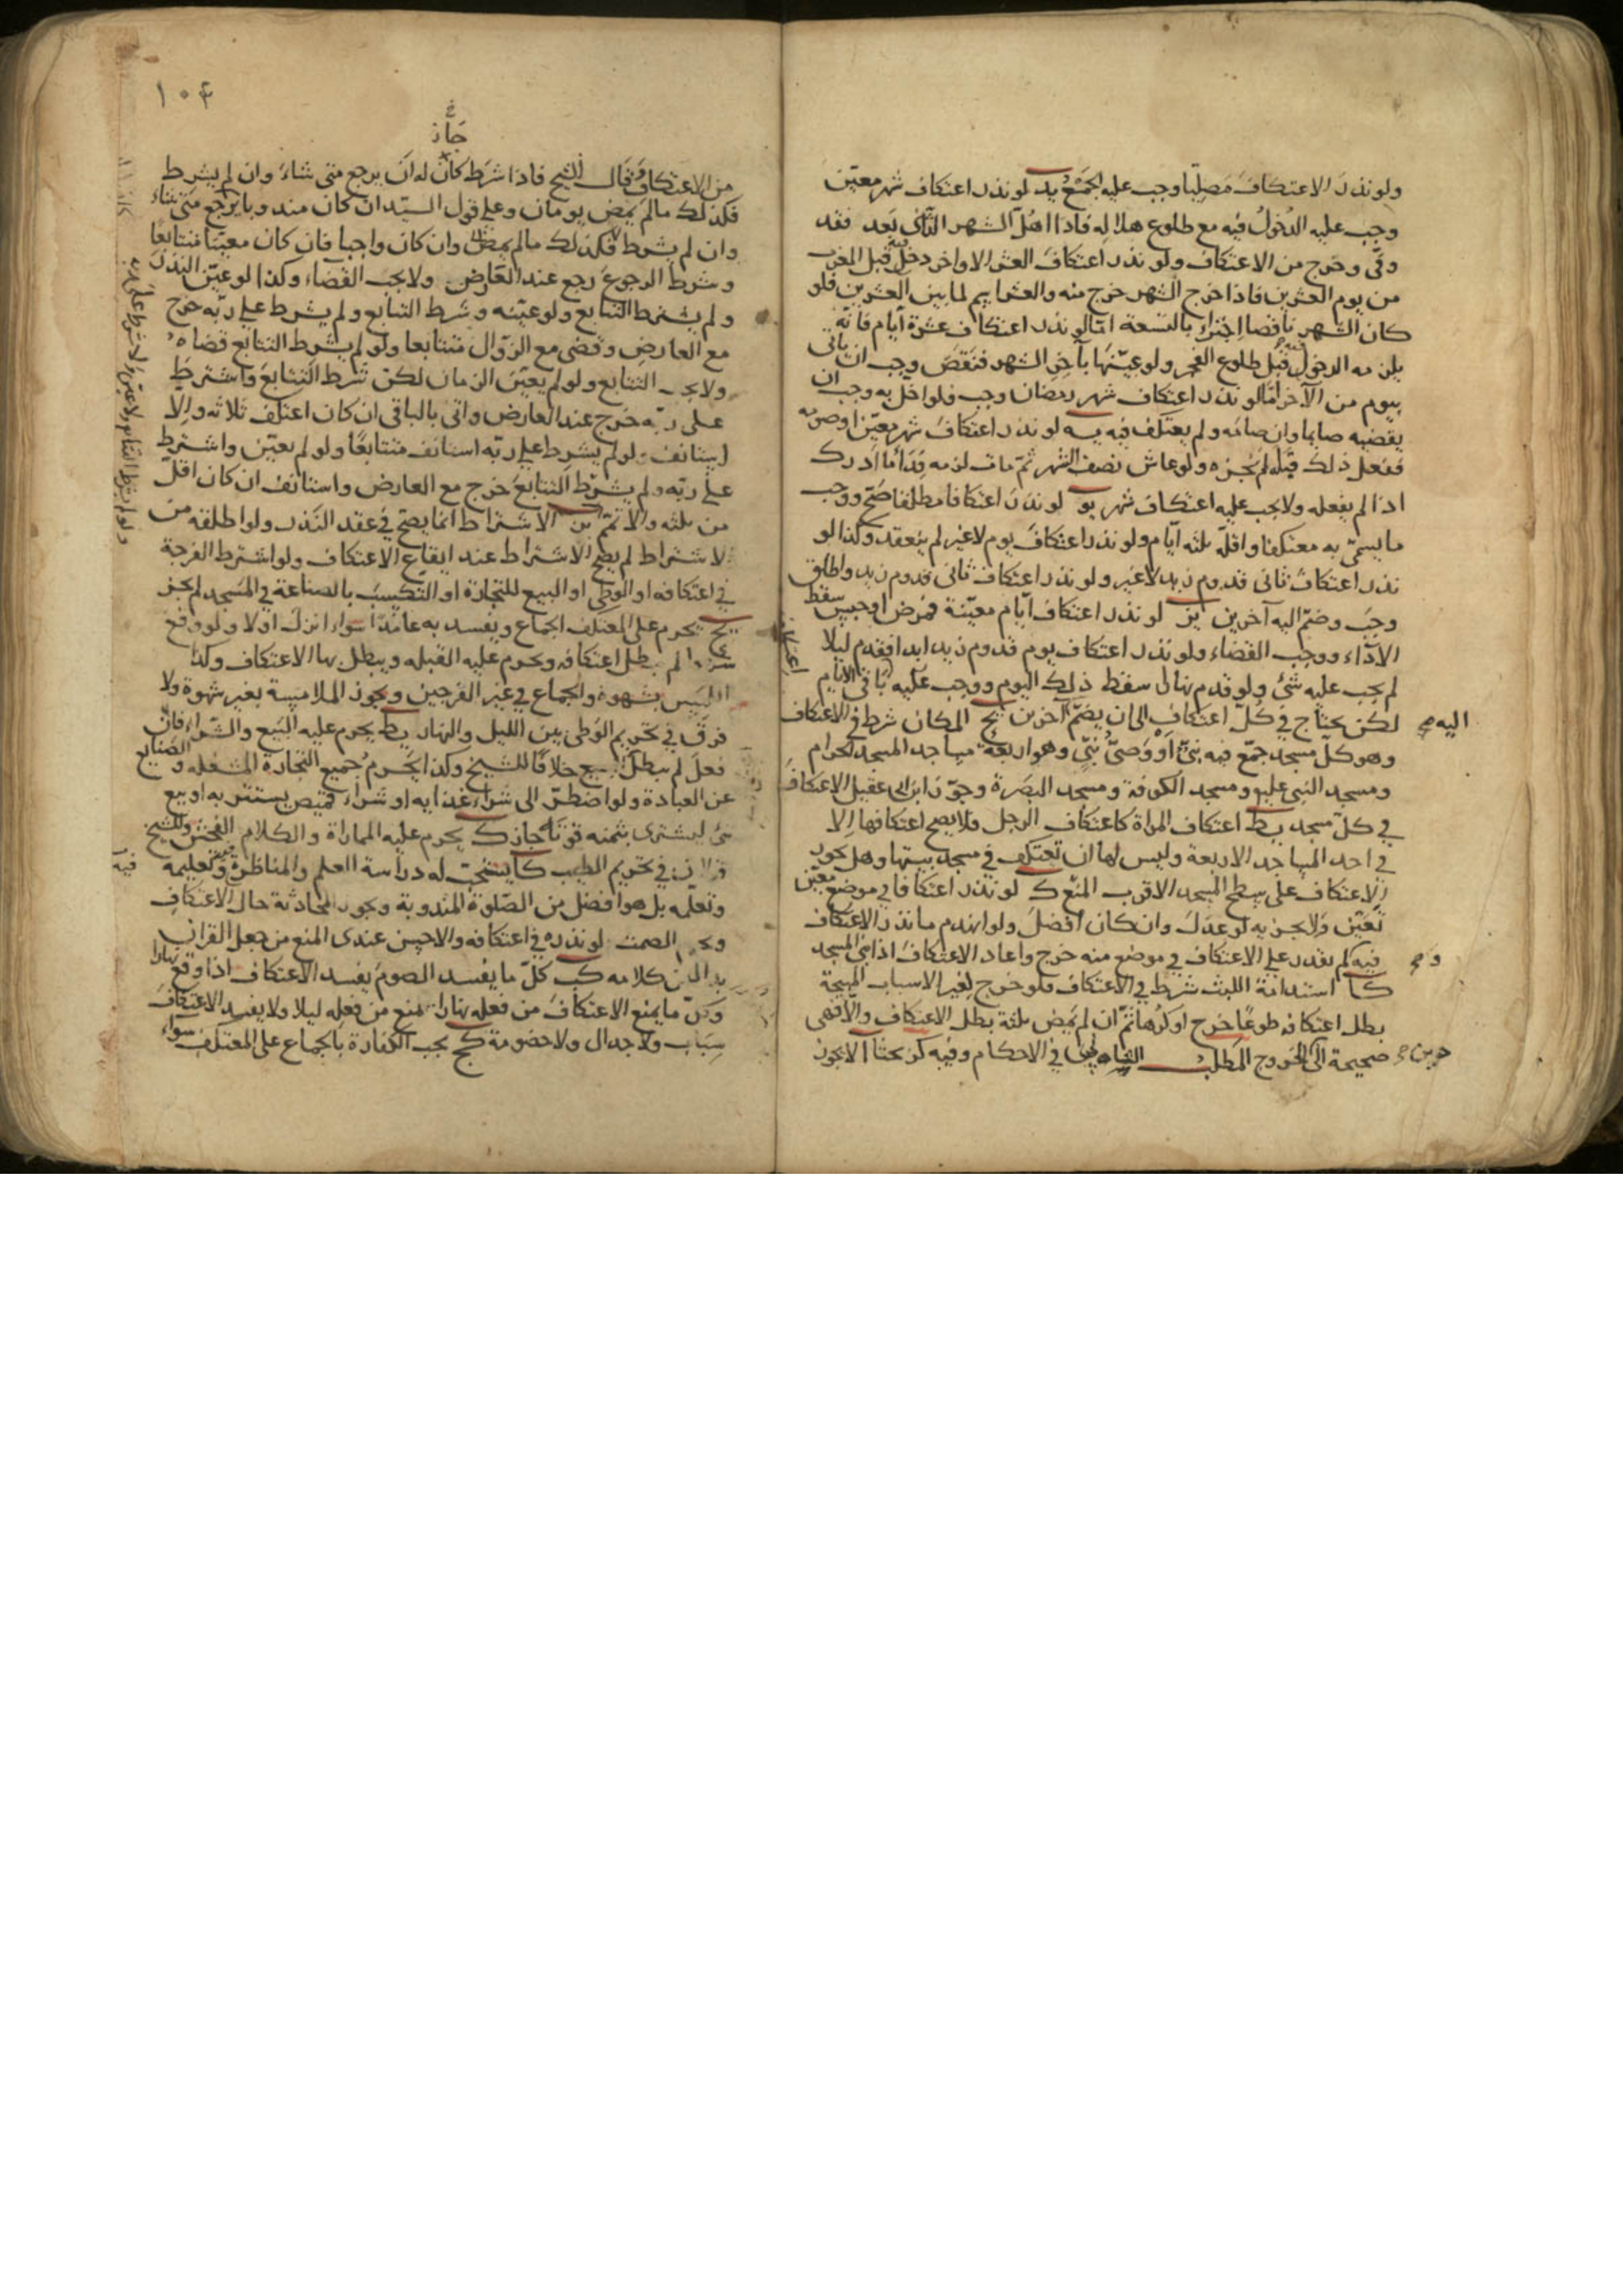 ولو نذر الاعتكاف مصليا وجب عليه الجمع يد لو نذر اعتكاف شهر معيّن
وجب عليه الدخول فيه مع طلوع هلاله فاذا اهلّ الشهر الثاني بعد فقد
وفّى وخرج من الاعتكاف ولو نذر اعتكاف العشر الاواخر دخل فيه قبل المغرب
من يوم العشرين فاذا خرج الشهر خرج منه والعشر اسم لما بين العشرين فلو
كان الشهر ناقصا اجتزاء بالتسعة امّا لو نذر اعتكاف عشرة ايّام فانّه
يلزمه الدخول قبل طلوع الفجر ولو عيّنها بآخر الشهر فنقص وجب ان ياتى
بيوم من الآخر امّا لو نذر اعتكاف شهر رمضان وجب فلو اخلّ به وجب ان
يقضيه صايما وان صامه ولم يعتكف فيه يه لو نذر اعتكاف شهر معيّن او صومه
ففعل ذلك قبله لم يجزه ولو عاش نصف الشهر ثمّ مات لزمه فدا ما ادرك
اذا لم يفعله ولا يجب عليه اعتكاف شهر يو لو نذر اعتكافا مطلقا صحّ ووجب
ما يسمّى به معتكفا واقلّه ثلثه ايّام ولو نذر اعتكاف يوم لا غير لم ينعقد وكذا لو
نذر اعتكاف ثانى قدوم زيد لا غير ولو نذر اعتكاف ثانى قدوم زيد واطلق
وجب وضمّ اليه آخرين يز لو نذر اعتكاف ايّام معيّنة فمرض او حبس سقط
الاداء ووجب القضاء ولو نذر اعتكاف يوم قدوم زيد ابدا فقدم ليلا
لم يجب عليه شئ ولو قدم نهارا سقط ذلك اليوم ووجب عليه باقى الايام
لكن يحتاج في كلّ اعتكاف الى ان يضمّ آخرين يح المكان شرط في الاعتكاف
اليه صح
وهو كلّ مسجد جمّع فيه نبيّ او وصيّ نبيّ وهو اربعة مساجد المسجد الحرام
ومسجد النبي عليه ومسجد الكوفة ومسجد البصرة وجوّز ابن ابى عقيل الاعتكاف
في كلّ مسجد يط اعتكاف المراة كاعتكاف الرجل فلا يصح اعتكافها الّا
في احد المساجد الاربعة وليس لها ان تعتكف في مسجد بيتها وهل يجوز
الاعتكاف على سطح المسجد الاقرب المنع ك لو نذر اعتكافا في موضع معيّن
تعيّن ولا يجزيه لو عدل وان كان افضل ولو انهدم ما نذر الاعتكاف
فيه لم يقدر على الاعتكاف في موضع منه خرج واعاد الاعتكاف اذا بنى المسجد
و صح
كا استدامة اللبث شرط في الاعتكاف فلو خرج لغير الاسباب المبيحة
بطل اعتكافه طوعا خرج او كرها ثمّ ان لم يمض ثلثة بطل الاعتكاف والّا فهى
صحيحة الى الخروج المطلب الثانى في الاحكام وفيه كز بحثا ا لا يجوز
حين صح
١٠٤
جاز
من الاعتكاف قال الشيخ فاذا شرط كان له ان يرجع متى شاء وان لم يشرط
فكذلك ما لم يمض يومان وعلى قول السيّد ان كان مندوبا يرجع متى شاء
وان لم يشرط فكذلك ما لم يمض وان كان واجبا فان كان معيّنا متتابعا
وشرط الرجوع رجع عند العارض ولا يجب القضاء وكذا لو عيّن النذر
ولم يشترط التتابع ولو عيّنه وشرط التتابع ولم يشرط على ربّه خرج
مع العارض وقضى مع الزوال متتابعا ولو لم يشرط التتابع قضاه
ولا يجب التتابع ولو لم يعيّن الزمان لكن شرط التتابع واشترط
على ربّه خرج عند العارض واتى بالباقى ان كان اعتكف ثلاثه والّا
استانف ولو لم يشرط على ربّه استانف متتابعا ولو لم يعيّن واشترط
على ربّه ولم يشرط التتابع خرج مع العارض واستانف ان كان اقلّ
من ثلثه والّا تمّم ب الاشتراط انما يصحّ في عقد النذر ولو اطلقه من
الاشتراط لم يصح الاشتراط عند ايقاع الاعتكاف ولو اشترط الفرجة
في اعتكافه او الوطى او البيع للتجارة او التكسب بالصناعة في المسجد لم يجز
ج يحرم على المعتكف الجماع ويفسد به عامدا سواء انزل او لا ولو وقع
لم يبطل اعتكافه ويحرم عليه القبله ويبطل بها الاعتكاف وكذا
اللمس بشهوة والجماع في غير الفرجين ويجوز الملامسة بغير شهوة ولا
فرق في تحريم الوطى بين الليل والنهار يحرم عليه البيع والشراء فان
فعل لم يبطل خلافا للشيخ وكذا يحرم جميع التجارة المشغله والصنايع
عن العبادة ولو اضطرّ الى شراء غذايه او شراء قميص يستتر به او بيع
شئ ليشترى بثمنه قوتا جاز ك يحرم عليه المماراة والكلام الفحش وللشيخ
في تحريم الطيب كا يستحبّ له دراسة العلم والمناظرة وتعليمه
وتعلّمه بل هو افضل من الصلوة المندوبة ويجوز المحادثة حال الاعتكاف
الصمت لو نذره في اعتكافه والاحسن عندى المنع من جعل القران
كلامه كب كلّ ما يفسد الصوم يفسد الاعتكاف اذا وقع نهارا
وكلّ ما يمنع الاعتكاف من فعله نهارا يمنع من فعله ليلا ولا يفسد الاعتكاف
سباب ولا جدال ولا خصومة كج يجب الكفارة بالجماع على المعتكف سواء